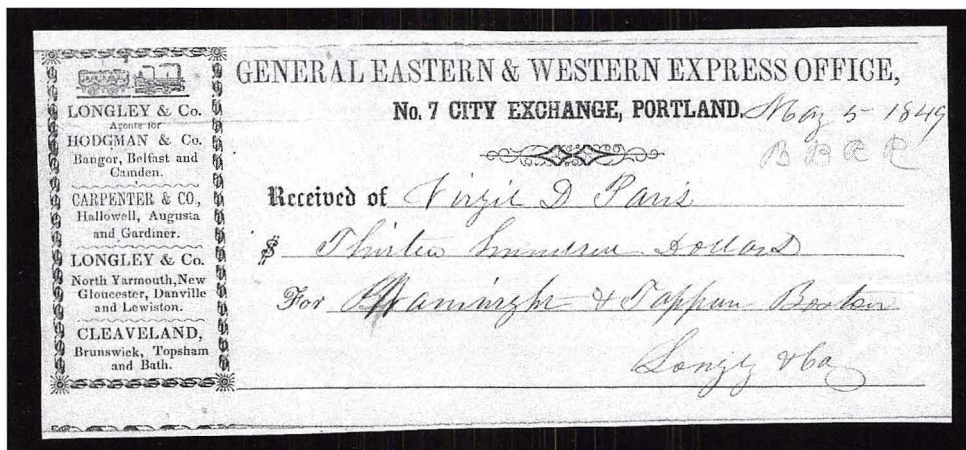 LONGLEY & Co.
Agents for
HODGMAN & Co.
Bangor, Belfast and
Camden.
CARPENTER & CO.,
Hallowell, Augusta
and Gardiner.
LONGLEY & Co.
North Yarmouth, New
Gloucester, Danville
and Lewiston.
CLEAVELAND,
Brunswick, Topsham
and Bath.
GENERAL EASTERN & WESTERN EXPRESS OFFICE,
No. 7 CITY EXCHANGE, PORTLAND. May 5 1849
Received of Virgil D Paris
$ Thirteen hundred Dollars
For & Tappan Boston
Longley & Co